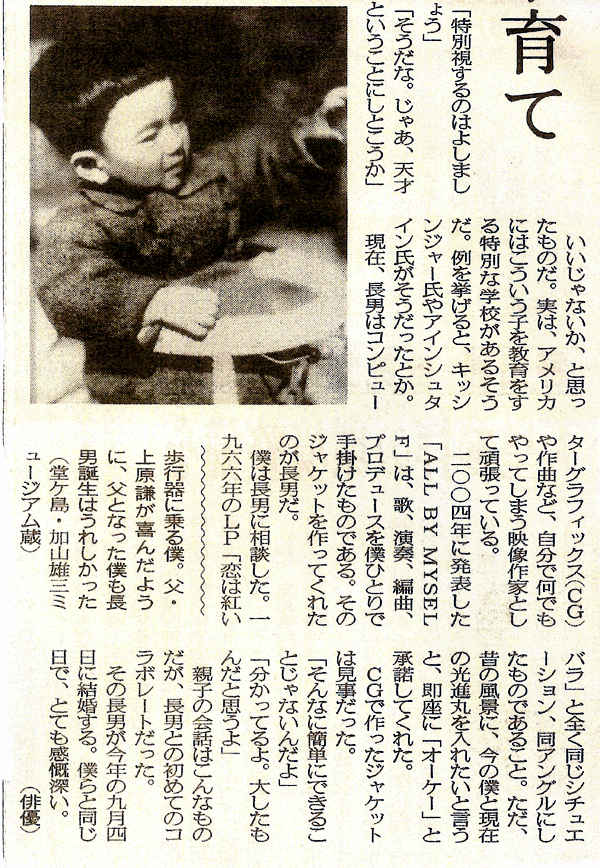 育て
「特別視するのはよしまし
ょう」
「そうだな。じゃあ、天才
ということにしとこうか」
いいじゃないか、と思っ
たものだ。実は、アメリカ
にはこういう子を教育をす
る特別な学校があるそう
だ。例を挙げると、キッシ
ンジャー氏やアインシュタ
イン氏がそうだったとか。
現在、長男はコンピュー
ターグラフィックス（CG）
や作曲など、自分で何でも
やってしまう映像作家とし
て頑張っている。
二〇〇四年に発表した
「ALL BY MYSEL
F」は、歌、演奏、編曲、
プロデュースを僕ひとりで
手掛けたものである。その
ジャケットを作ってくれた
のが長男だ。
僕は長男に相談した。一
九六六年のLP「恋は紅い
バラ」と全く同じシチュエ
ーション、同アングルにし
たものであること。ただ、
昔の風景に、今の僕と現在
の光進丸を入れたいと言う
と、即座に「オーケー」と
承諾してくれた。
CGで作ったジャケット
は見事だった。
「そんなに簡単にできるこ
とじゃないんだよ」
「分かってるよ。大したも
んだと思うよ」
親子の会話はこんなもの
だが、長男との初めてのコ
ラボレートだった。
その長男が今年の九月四
日に結婚する。僕らと同じ
日で、とても感慨深い。
（俳優）
歩行器に乗る僕。父・
上原謙が喜んだよう
に、父となった僕も長
男誕生はうれしかった
（堂ケ島・加山雄三ミ
ュージアム蔵）